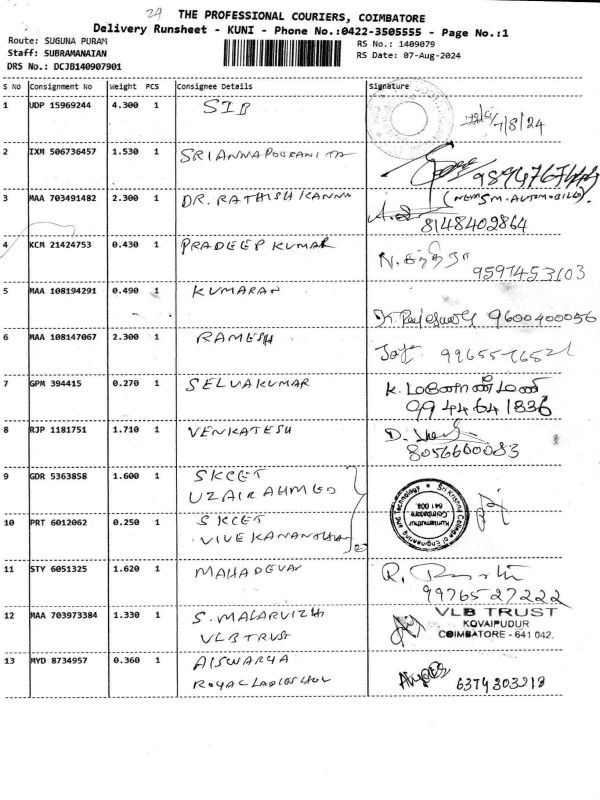 24
THE PROFESSIONAL COURIERS, COIMBATORE
Delivery Runsheet - KUNI - Phone No.:0422-3505555 - Page No.:1
Route: SUGUNA PURAM
RS No.: 1409079
Staff: SUBRAMANAIAN
RS Date: 07-Aug-2024
DRS No.: DCJB140907901
S No Consignment No Weight PCS Consignee Details Signature
1 UDP 15969244 4.300 1 SIB 7/8/24
2 IXM 506736457 1.530 1 SRI ANNAPOORANI
3 MAA 703491482 2.300 1 DR. RATHISH KANNA
8148402864
4 KCM 21424753 0.430 1 PRADEEP KUMAR N.
9597453103
5 MAA 108194291 0.490 1 KUMARAN
9600400056
6 MAA 108147067 2.300 1 RAMESH
7 GPM 394415 0.270 1 SELVAKUMAR K.
9944641836
8 RJP 1181751 1.710 1 VENKATESH D.
8056600083
9 GDR 5363858 1.600 1 SKCET
UZAIR AHMED
Sri Krishna College of Engineering and Technology
Kuniamuthur
Coimbatore
641 008.
10 PRT 6012062 0.250 1 SKCET
VIVEKANANTHAN
11 STY 6051325 1.620 1 MAHADEVAN R.
9976527222
12 MAA 703973384 1.330 1 S. MALARVIZHI
VLB TRUST
VLB TRUST
KOVAIPUDUR
COIMBATORE - 641 042.
13 MYD 8734957 0.360 1 AISWARYA
6374303218